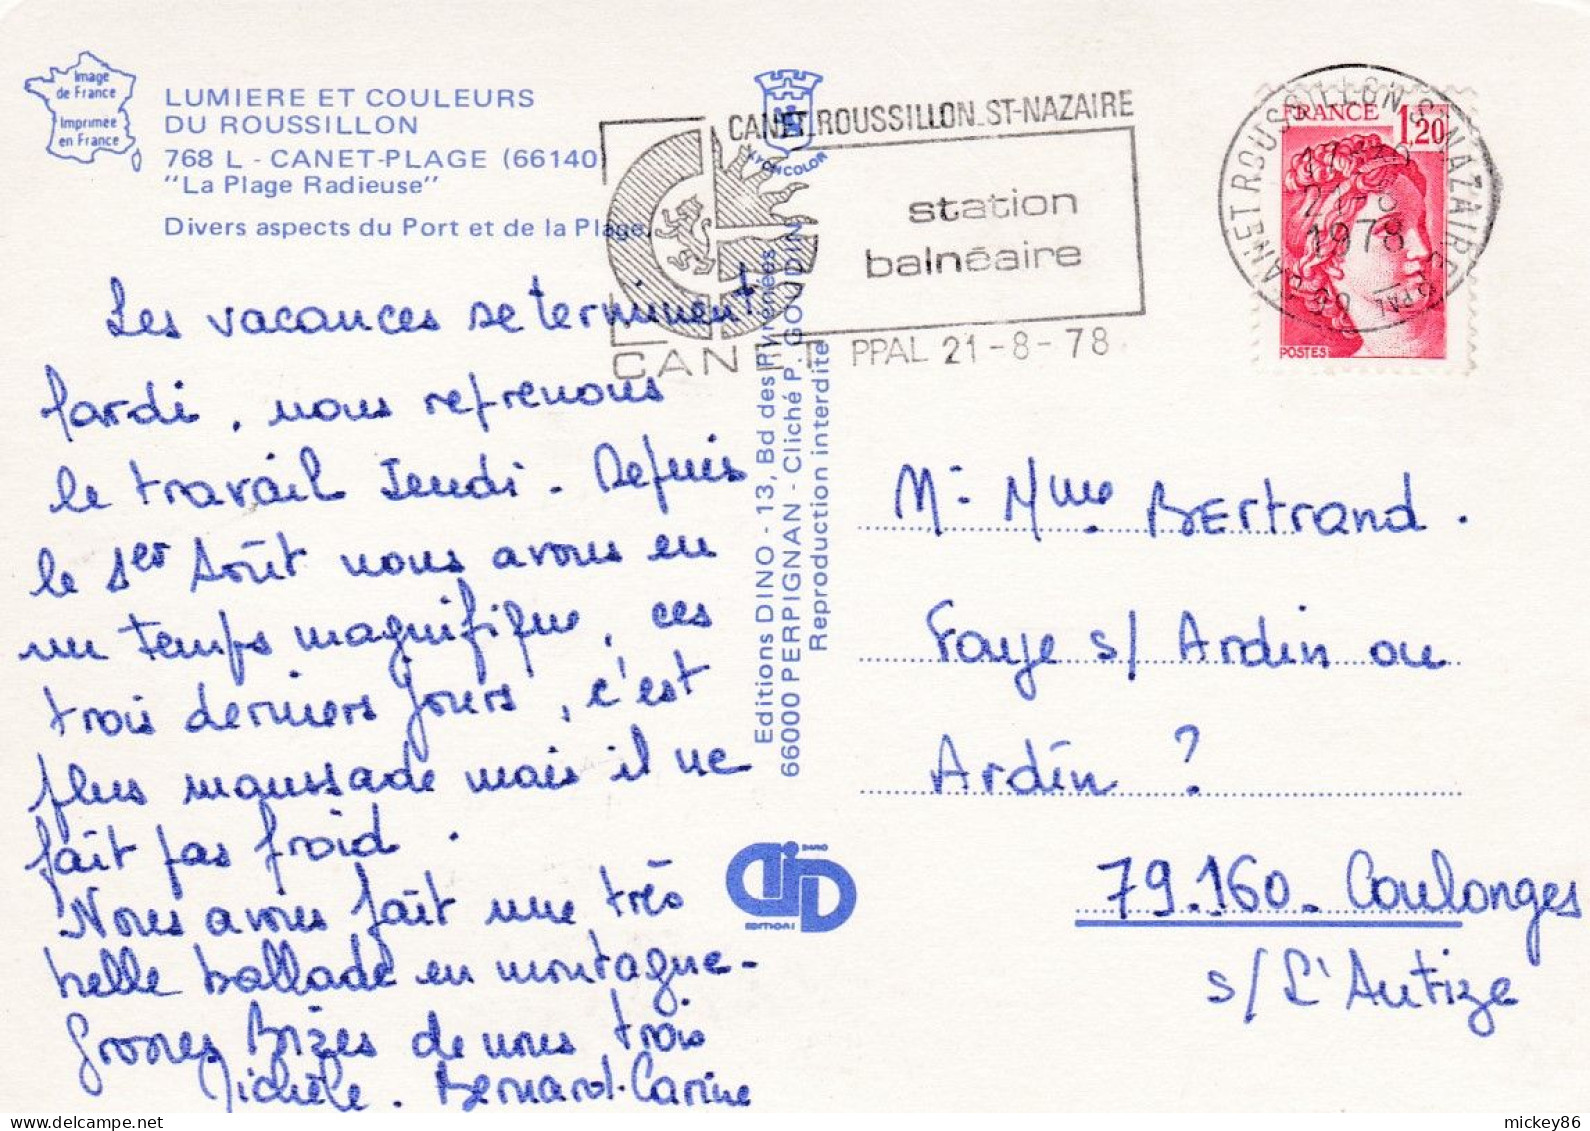 Image
de France
Imprimée
en France
LUMIERE ET COULEURS
DU ROUSSILLON
768 L - CANET-PLAGE (66140)
"La Plage Radieuse"
Divers aspects du Port et de la Plage.
LYONCOLOR
CANET ROUSSILLON ST-NAZAIRE
station
balnéaire
CANET PPAL 21-8-78
CANET ROUSSILLON ST NAZAIRE PPAL 66
17H30
21-8
1978
FRANCE 1,20
POSTES
Les vacances se terminent
Mardi, nous reprenons
le travail Jeudi. Depuis
le 1er Août nous avons eu
un temps magnifique, ces
trois derniers jours, c'est
plus maussade mais il ne
fait pas froid.
Nous avons fait une très
belle ballade en montagne-
Grosses Bizes de nous trois
Michèle. Bernard. Carine
Editions DINO - 13, Bd des Pyrénées
66000 PERPIGNAN - Cliché P. GOUDIN
Reproduction interdite
DINO
EDITIONS
Mr Mme Bertrand.
Faye s/ Ardin ou
Ardin ?
79.160. Coulonges
s/ L'Autize
mickey86